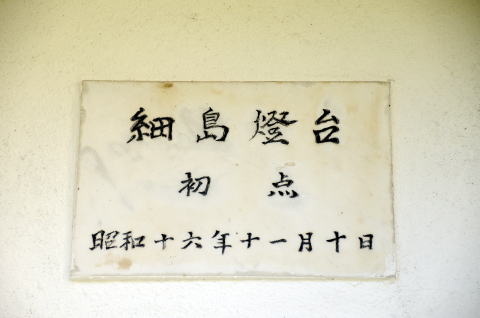 細島燈台
初点
昭和十六年十一月十日